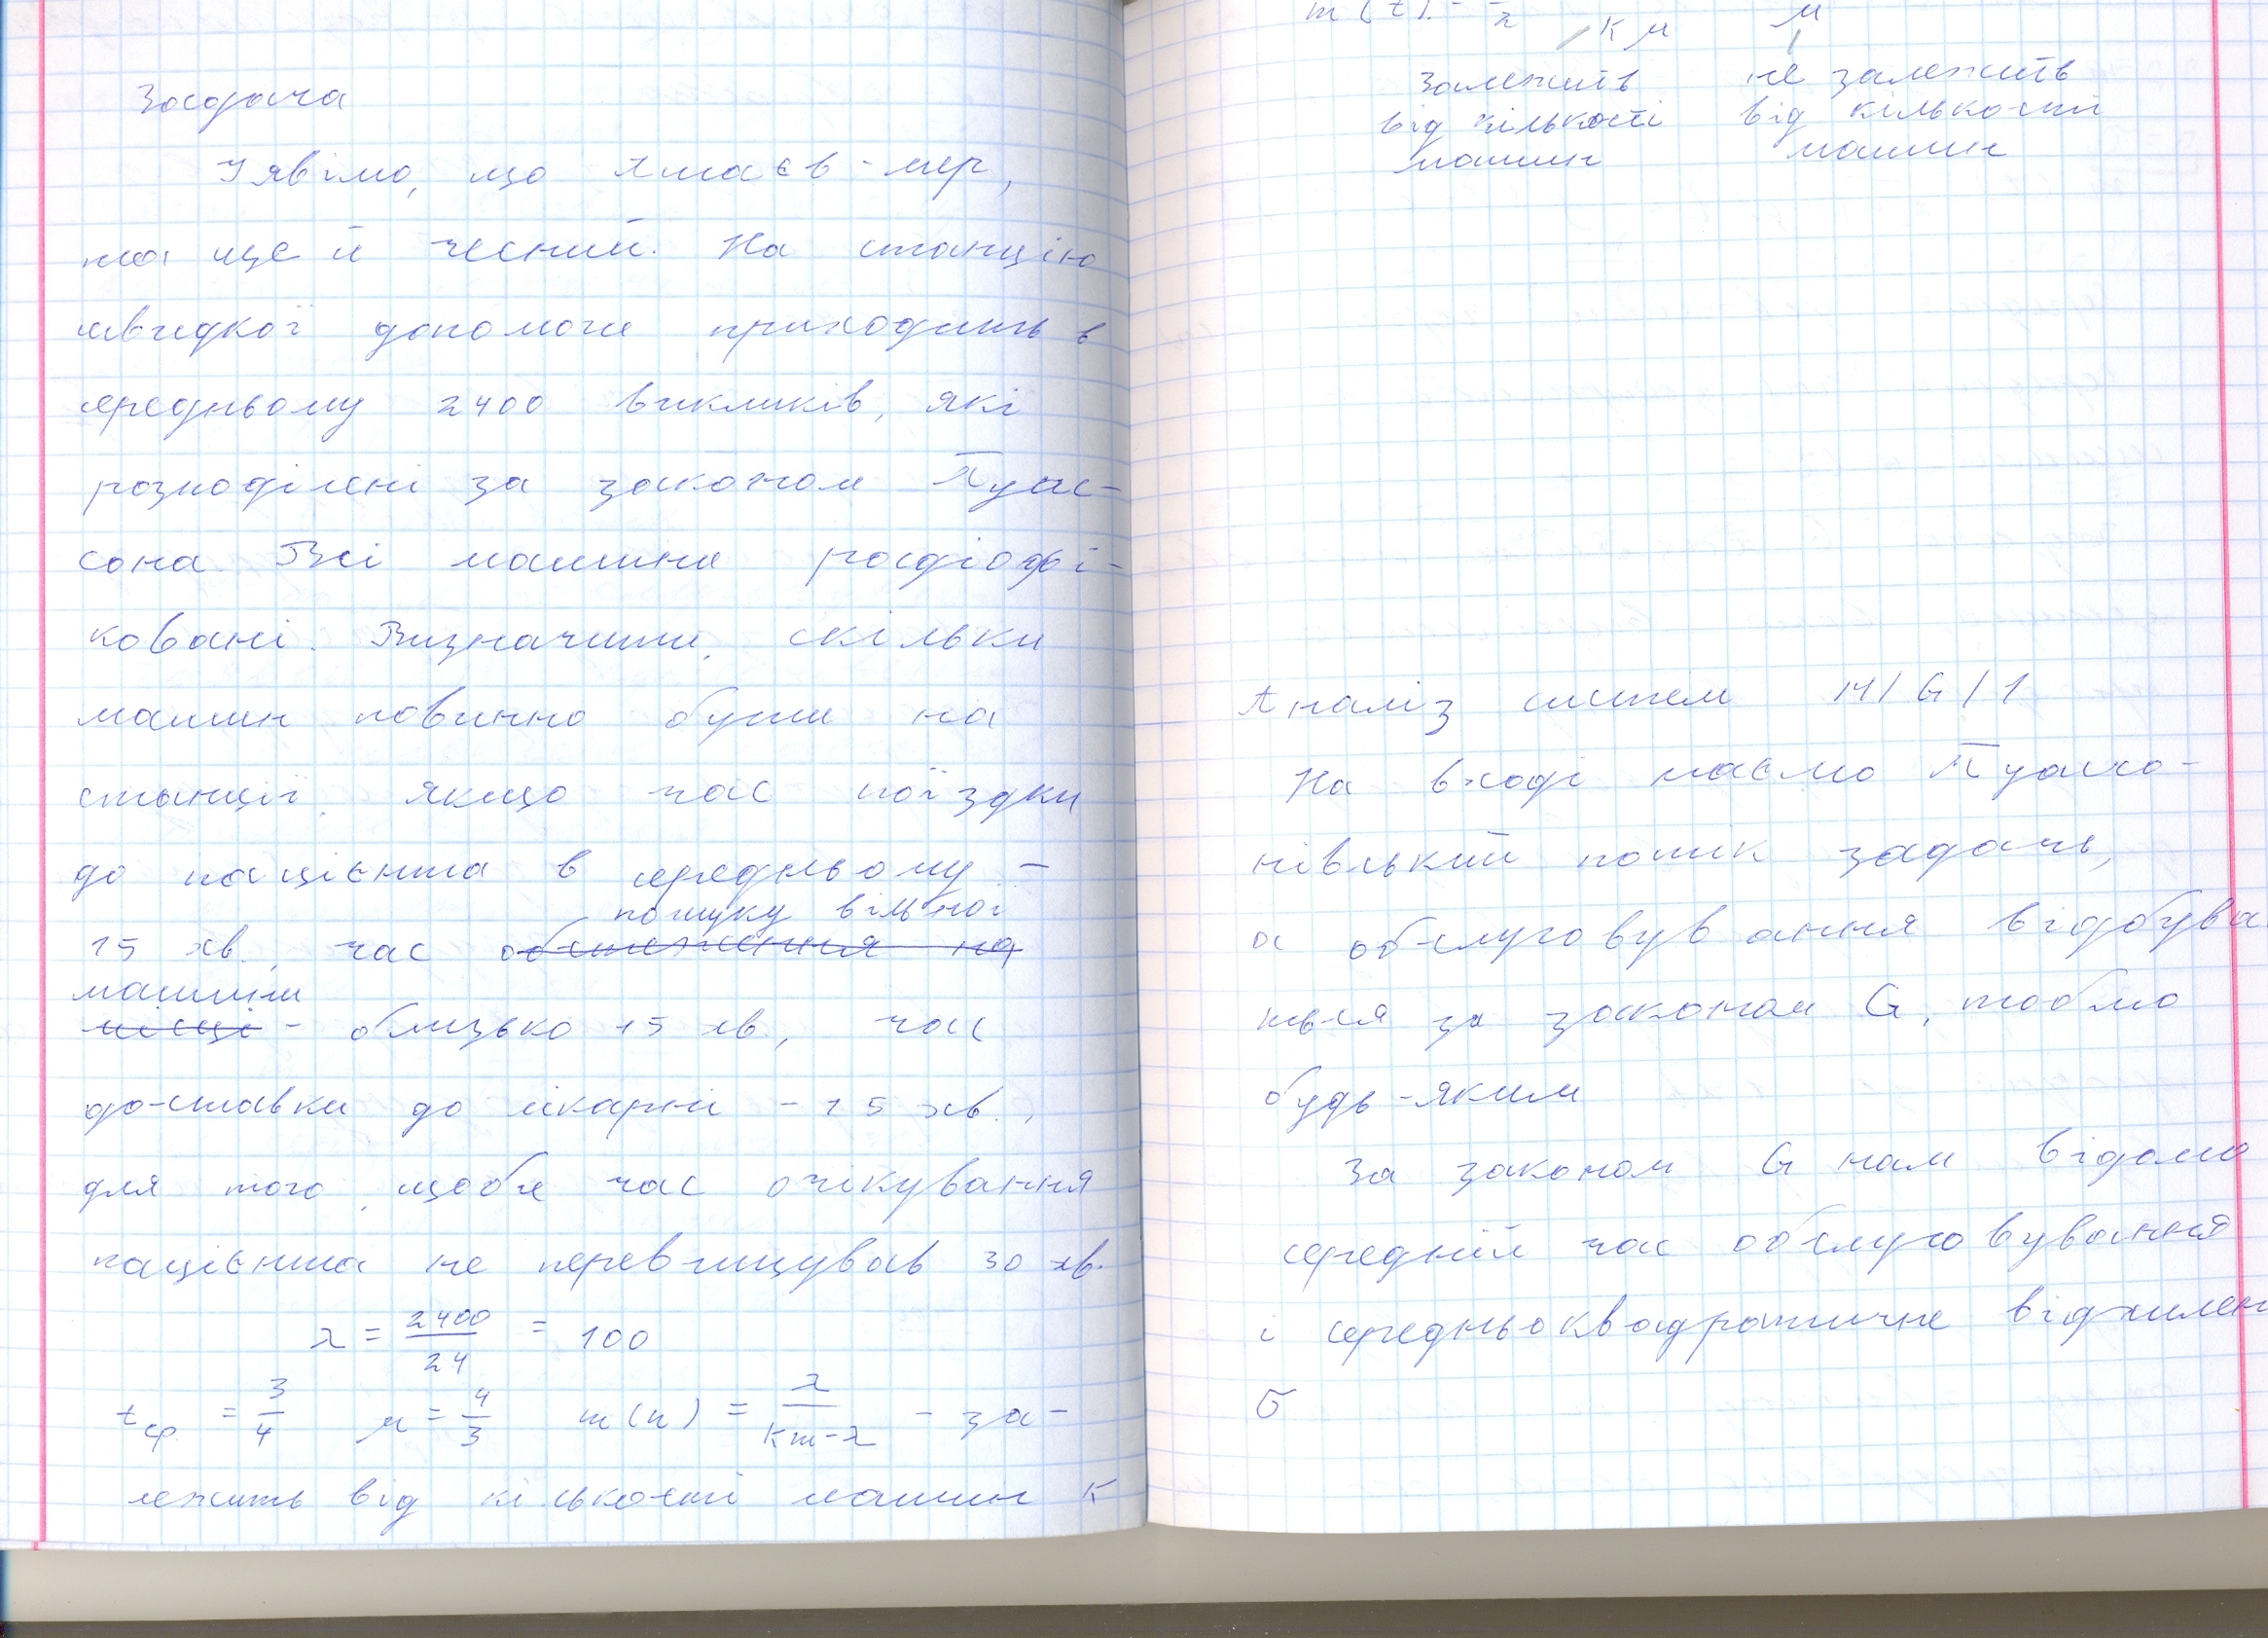 Задача
Уявімо, що Хмаєв-мер,
та ще й чесний. На станцію
швидкої допомоги приходить в
середньому 2400 викликів, які
розподілені за законом Пуас-
сона. Всі машини радіофі-
ковані. Визначити, скільки
машин повинно бути на
станції, якщо час поїздки
до пацієнта в середньому -
пошуку вільної
15 хв., час обстеження на
машини
місці - близько 15 хв., час
доставки до лікарні - 15 хв.,
для того, щоби час очікування
пацієнта не перевищував 30 хв.
λ = 2400/24 = 100
t ср. = 3/4 μ = 4/3 m(n) = λ/(km-λ) - за-
лежить від кількості машин к
m(t) = 1/λ kμ μ
залежить не залежить
від кількості від кількості
машин машин
Аналіз систем M/G/1
На вході маємо Пуассо-
нівський потік задач,
а обслуговування відбува
ться за законом G, тобто
будь-яким
За законом G нам відомо
середній час обслуговування
і середньоквадратичне відхилен
σ